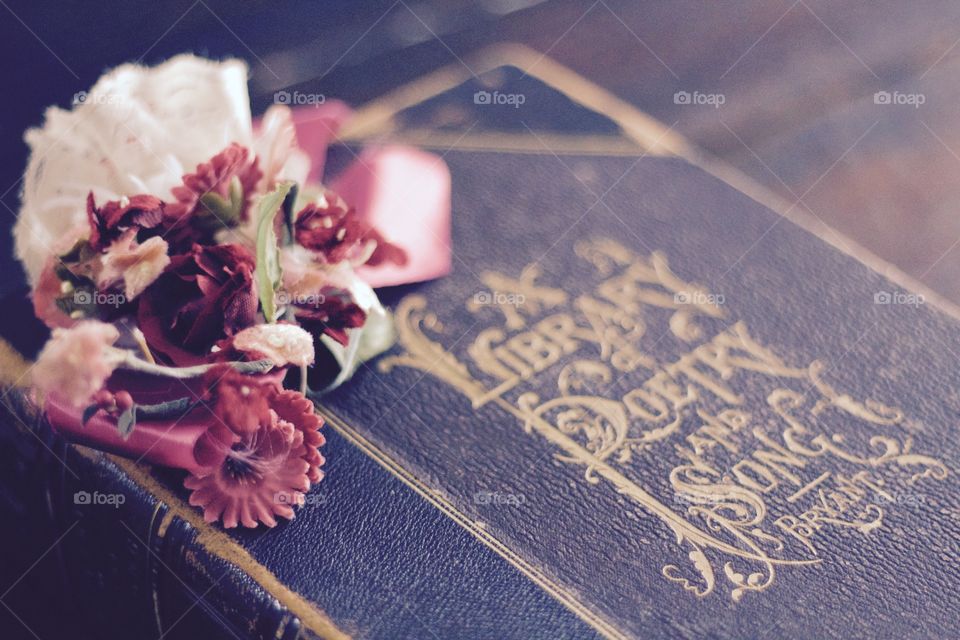 A
LIBRARY
OF
POETRY
AND
SONG
BRYANT
foap foap foap foap
foap foap foap
foap foap foap foap foap